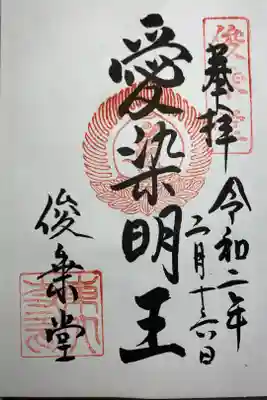 奉拝
令和二年
二月十六日
愛染明王
俊乗堂